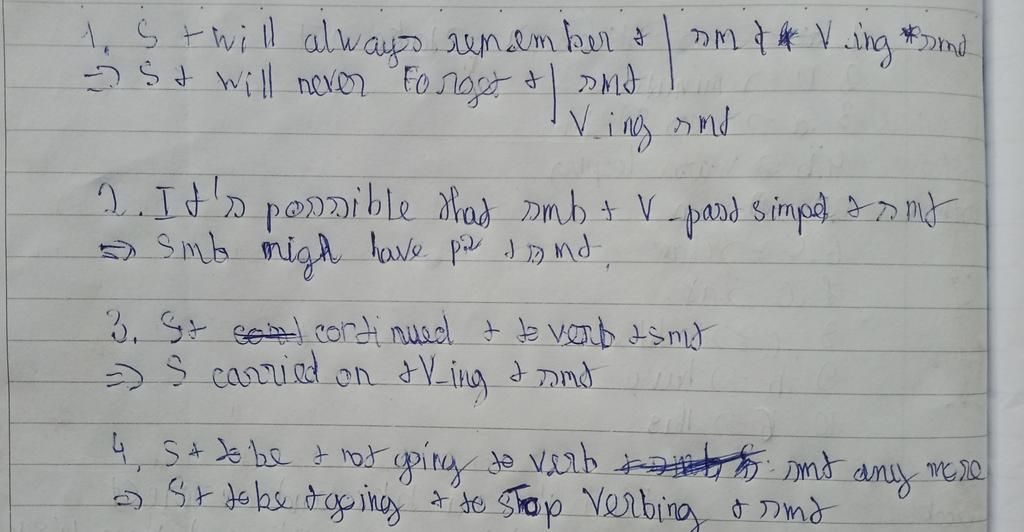 1. S + will always remember + | smt + V-ing + smt
=> S + will never Forget + | smt
V-ing smt
2. It's possible that smb + V-past simpel + smt
=> Smb migh have p2 + smt.
3. S + continued + to verb + smt
=> S carried on + V-ing + smt
4. S + to be + not going to verb smt any more
=> S + to be + going + to stop Verbing + smt